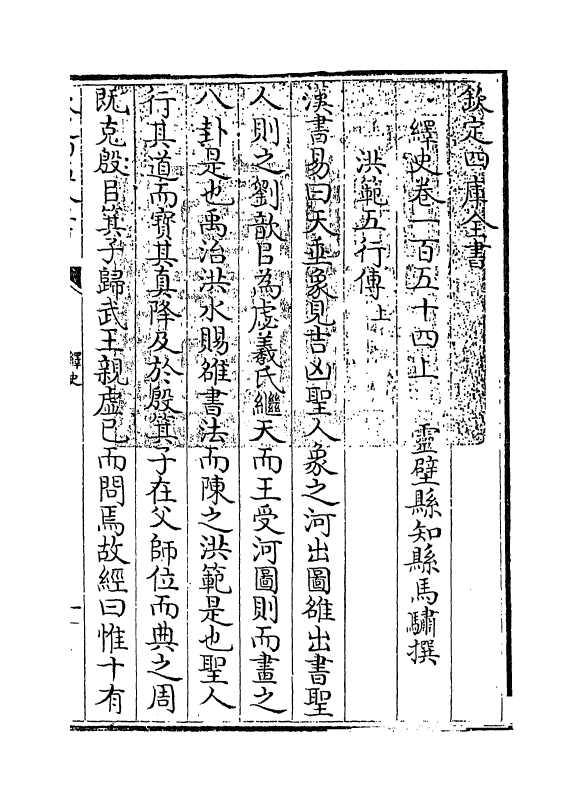 欽定四庫全書
繹史卷一百五十四上　靈壁縣知縣馬驌撰
洪範五行傳上
漢書易曰天垂象見吉凶聖人象之河出圖雒出書聖
人則之劉歆㠯為虙羲氏繼天而王受河圖則而畫之
八卦是也禹治洪水賜雒書法而陳之洪範是也聖人
行其道而寶其真降及於殷箕子在父師位而典之周
既克殷㠯箕子歸武王親虛己而問焉故經曰惟十有
繹史
一